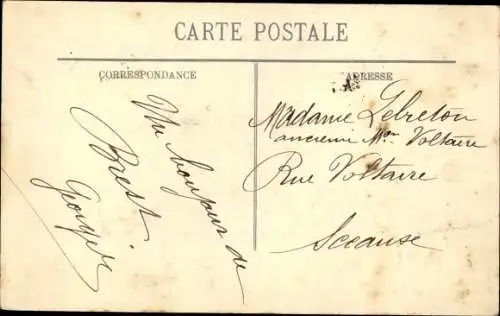 CARTE POSTALE
CORRESPONDANCE
Un bonjour de
Brest.
Georges
ADRESSE
Madame Lebreton
ancienne Mon Voltaire
Rue Voltaire
Sceause